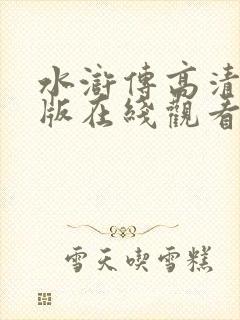 水滸傳高清
版在綫觀看
雪天喫雪糕